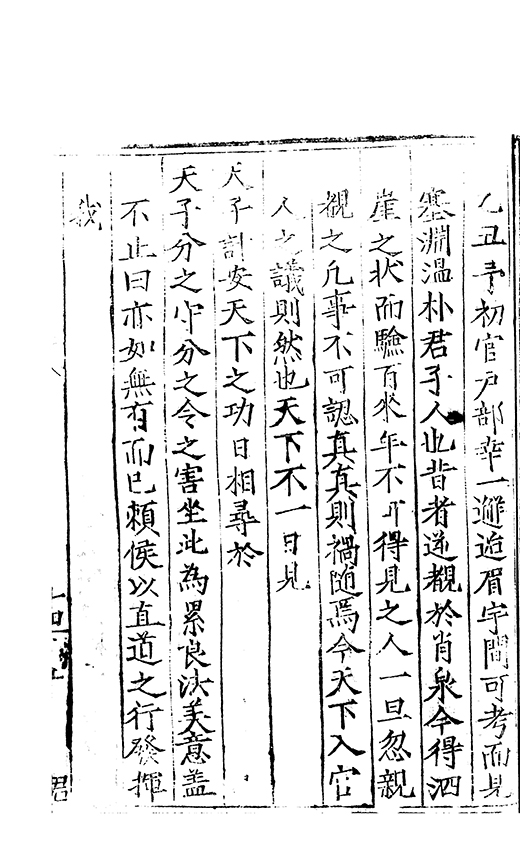 乙丑予初官戶部幸一邂逅眉宇間可考而見
塞淵温朴君子人也昔者逆覩於肖泉今得泗
崖之狀而驗百來年不可得見之人一旦忽親
覩之凡事不可認真真則禍随焉今天下入官
人之議則然也天下不一日見
天子計安天下之功日相尋於
天子分之守分之令之害坐此為累良法美意盖
不止曰亦如無有而已頼侯以直道之行發揮
我
君